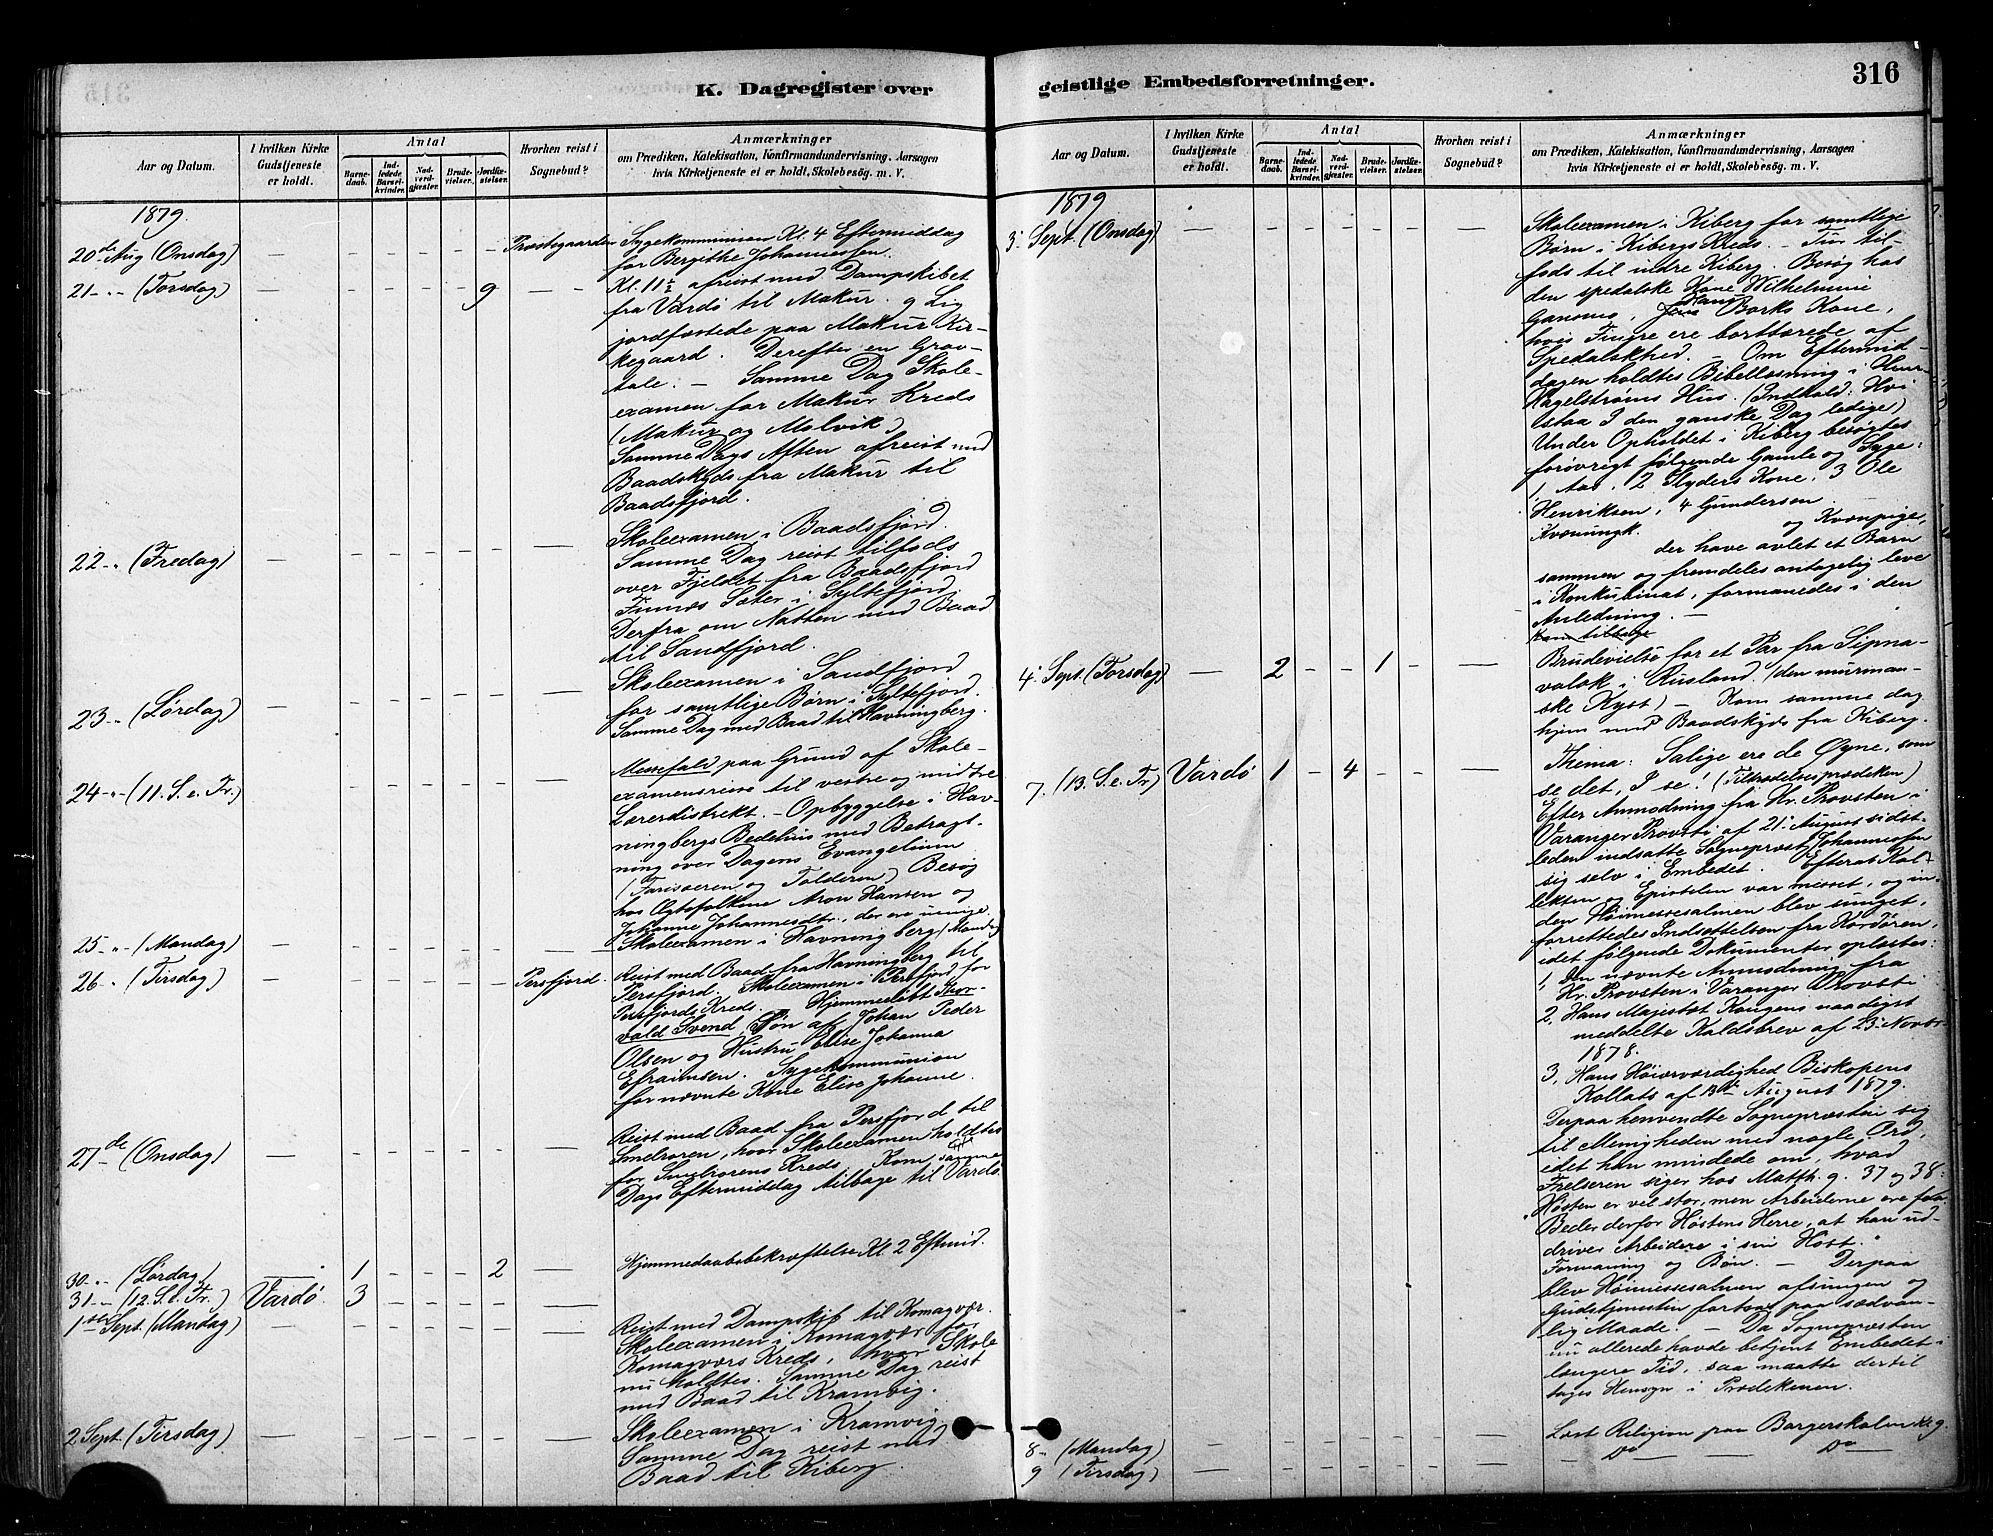 K. Dagregister over
Aar og Datum.
I hvilken Kirke Gudstjeneste er holdt.
Antal
Barnedaab.
Indledede Barselkvinder.
Nadverdgjæster.
Brudevielser.
Jordfæstelser.
Hvorhen reist i Sognebud?
Anmærkninger
om Prædiken, Katekisation, Konfirmandundervisning, Aarsagen
hvis Kirketjeneste ei er holdt, Skolebesøg. m. V.
1879.
20de Aug (Onsdag) — – – – – – Præstegaarden Sygekommunion Kl. 4 Eftermiddag
for Bergithe Johannessen.
21 - " (Torsdag) — – – – – 9 — Kl. 11½ afreist med Dampskibet
fra Vardø til Makur. 9 Lig
jordfæstede paa Makur Kir-
kegaard. Derefter en Grav-
tale. — Samme Dag Skole-
examen for Makur Kreds
(Makur og Molvik)
Samme Dags Aften afreist med
Baadskyds fra Makur til
Baadsfjord.
22 - " (Fredag) — – – – – – — Skoleexamen i Baadsfjord.
Samme Dag reist tilfods
over Fjeldet fra Baadsfjord
Finnes Sæter i Syltefjord
Derfra om Natten med Baad
til Sandfjord.
23 - " (Lørdag) — – – – – – — Skoleexamen i Sandfjord
for samtlige Børn i Syltefjord.
Samme Dag med Baad til Havningberg.
24 - " (11. S. e. Tr.) — – – – – – — Messefald paa Grund af Skole-
examensreise til vestre og midtre
Lærerdistrekt. — Opbyggelse i Hav-
ningbergs Bedehus med Betragt-
ning over Dagens Evangelium
(Farisæeren og Tolderen) Besøg
hos Ægtefolkene Aron Hansen og
Johanne Johannesdtr., der ere uenige.
25 - " (Mandag) — – – – – – — Skoleexamen i Havningberg (Mandag)
26 - " (Tirsdag) — – – – – – Persfjord. Reist med Baad fra Havningberg til
Persfjord. Skoleexamen i Persfjord for
Persfjords Kreds. Hjemmedøbt Thor-
vald Svend, Søn af Johan Peder
Olsen og Hustru Elise Johanna
Efraimsen. Sygekommunion
for nævnte Kone Elise Johanne.
27de - (Onsdag) — – – – – – — Reist med Baad fra Persfjord til
Smelroren, hvor Skoleexamen holdtes
for Smelrorens Kreds. Kom samme
Dags Eftermiddag tilbage til Vardø.
30 - " (Lørdag) — 1 – – – 2 — Hjemmedaabsbekræftelse Kl. 2 Eftmid.
31 - " (12. S. e. Tr.) Vardø. 3 – – – – —
1ste Sept. (Mandag) — – – – – – — Reist med Dampskib til Komagvær.
Skoleexamen i Komagvær for
Komagværs Kreds, hvor Skole
nu holdtes. Samme Dag reist
med Baad til Kramvig.
2 Sept. (Tirsdag) — – – – – – — Skoleexamen i Kramvig.
Samme Dag reist med
Baad til Kiberg.
geistlige Embedsforretninger.
316
Aar og Datum.
I hvilken Kirke Gudstjeneste er holdt.
Antal
Barnedaab.
Indledede Barselkvinder.
Nadverdgjæster.
Brudevielser.
Jordfæstelser.
Hvorhen reist i Sognebud?
Anmærkninger
om Prædiken, Katekisation, Konfirmandundervisning, Aarsagen
hvis Kirketjeneste ei er holdt, Skolebesøg. m. V.
1879
3. Sept. (Onsdag) — – – – – – — Skoleexamen i Kiberg for samtlige
Børn i Kibergs Kreds. — Tur til-
fods til indre Kiberg. Besøg hos
den spedalske Kone Wilhelmine
Hans Borks Kone,
hvis Fingre ere borttærede af
Spedalskhed. — Om Eftermid-
dagen holdtes Bibellæsning i
Hagelstrøms Hus. (Indhold: Hvi
staa I den ganske Dag ledige)
Under Opholdet i Kiberg besøgtes
forøvrigt følgende Gamle og Syge:
1, Aas. 2 Flyders Kone. 3 Ole
Henriksen, 4 Gundersen.
og Kvænpige,
der have avlet et Barn
sammen og fremdeles antagelig leve
i Konkubinat, formanedes i den
Anledning. —
Kom tilbage
4. Sept. (Torsdag) — 2 – – 1 – — Brudevielse for et Par fra Sipna-
valok i Rusland. (den murman-
ske Kyst) — Kom samme dag
hjem med Baadskyds fra Kiberg.
7. (13. S. e. Tr) Vardø 1 – 4 – – — Thema: Salige ere de Øyne, som
se det, I se! (Tiltrædelsesprædiken)
Efter Anmodning fra Hr. Provsten i
Varanger Provsti af 21. August sidst-
leden indsatte Sognepræst Johannessen
sig selv i Embedet. Efterat Kol-
lekten og Epistelen var messet, og in-
den Høimessesalmen blev sunget,
forrettedes Indsættelsen fra Kordøren,
idet følgende Dokumenter oplæstes:
1, Den nævnte Anmodning fra
Hr. Provsten i Varanger Provsti
2, Hans Majestæt Kongens naadigst
meddelte Kaldsbrev af 23. Novbr
1878.
3, Hans Høiærværdighed Biskopens
Kollats af 13de August 1879.
Derpaa henvendte Sognepræsten sig
til Menigheden med nogle Ord,
idet han mindede om, hvad
Frelseren siger hos Matth. 9. 37 og 38:
"Høsten er vel stor, men Arbeiderne ere faa
Beder derfor Høstens Herre, at han ud-
driver Arbeidere i sin Høst."
Formaning og Bøn. — Derpaa
blev Høimessesalmen afsungen og
Gudstjenesten fortsat paa sædvan-
lig Maade. — Da Sognepræsten
nu allerede havde betjent Embedet i
længere Tid, saa maatte dertil
tages Hensyn i Prædikenen.
8 - (Mandag) — – – – – – — Læst Religion paa Borgerskolen Kl 9.
9 (Tirsdag) — – – – – – — Do — Do —